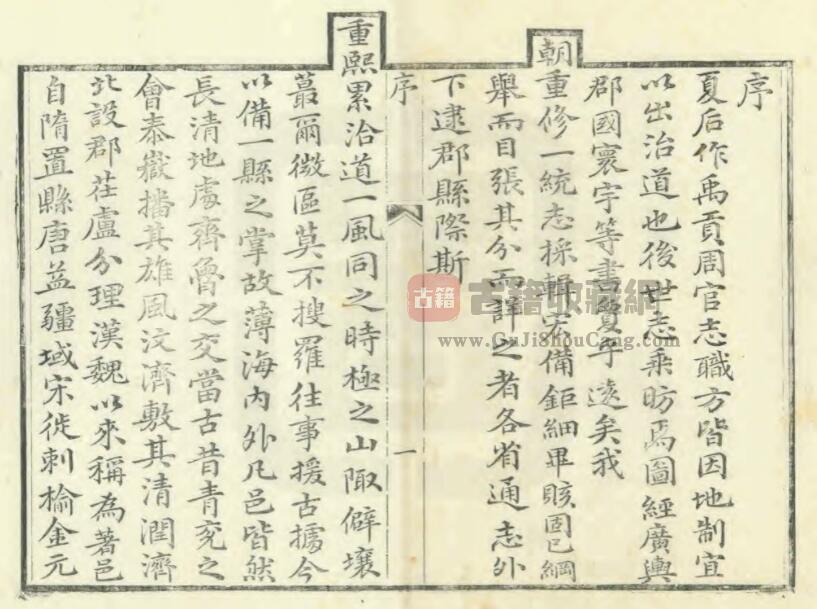 序
夏后作禹貢周官志職方皆因地制宜
以出治道也後世志乘昉焉圖經廣輿
郡國寰宇等書夐乎遠矣我
朝重修一統志採輯宏備鉅細畢賅固已綱
舉而目張其分而譯之者各省通志外
下逮郡縣際斯
序
一
重熙累洽道一風同之時極之山陬僻壤
蕞爾微區莫不搜羅往事援古據今
以備一縣之掌故薄海內外凡邑皆然
長清地處齊魯之交當古昔青兗之
會泰嶽播其雄風汶濟敷其清潤濟
北設郡茌盧分理漢魏以來稱為著邑
自隋置縣唐益疆域宋徙刺榆金元
古籍
古籍收藏網
www.GuJiShouCang.com